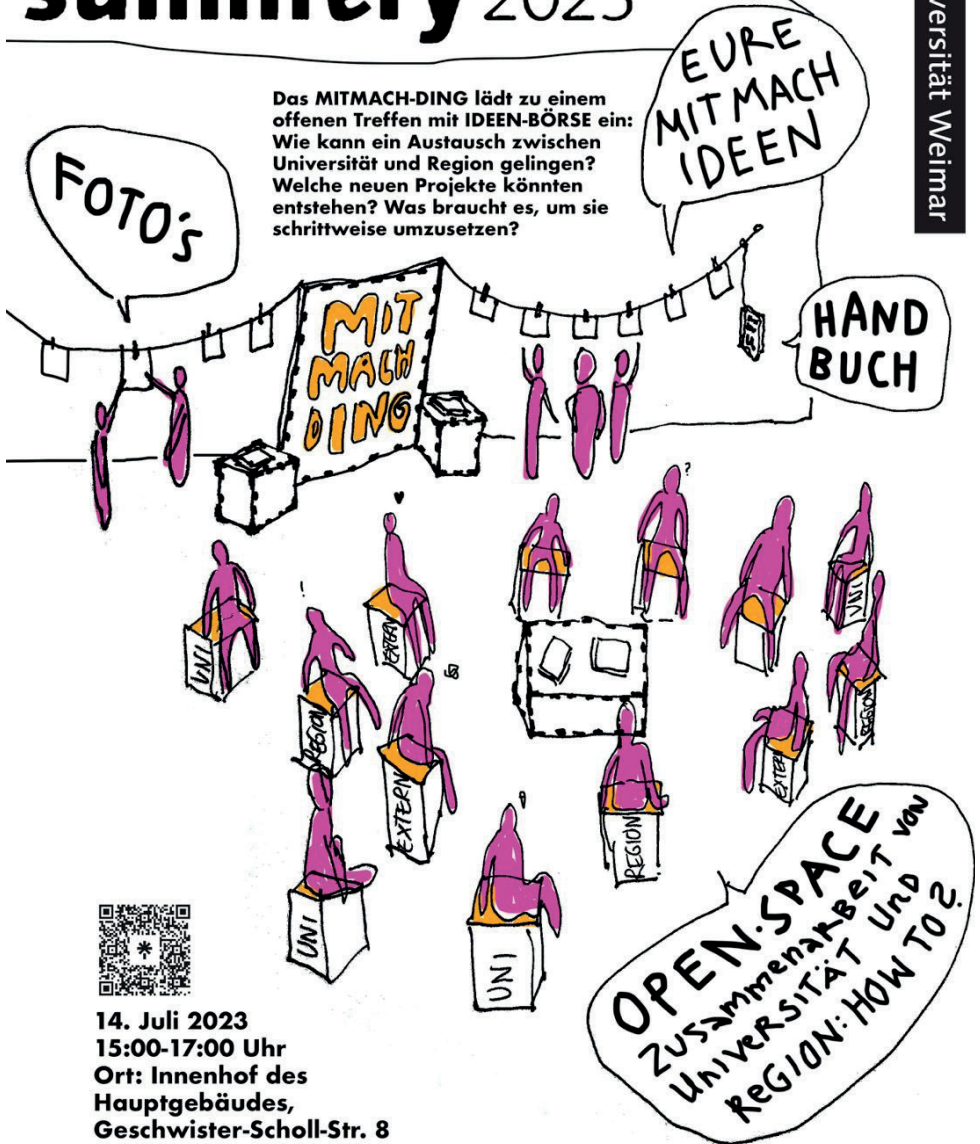 summery 2023
versität Weimar
Das MITMACH-DING lädt zu einem
offenen Treffen mit IDEEN-BÖRSE ein:
Wie kann ein Austausch zwischen
Universität und Region gelingen?
Welche neuen Projekte könnten
entstehen? Was braucht es, um sie
schrittweise umzusetzen?
EURE
MITMACH
IDEEN
FOTO'S
MIT
MACH
DING
HAND
BUCH
UNI
REGION
EXTERN
UNI
REGION
EXTERN
EXTERN
REGION
UNI
UNI
OPEN·SPACE
ZUSAMMENARBEIT VON
UNIVERSITÄT UND
REGION: HOW TO?
14. Juli 2023
15:00-17:00 Uhr
Ort: Innenhof des
Hauptgebäudes,
Geschwister-Scholl-Str. 8